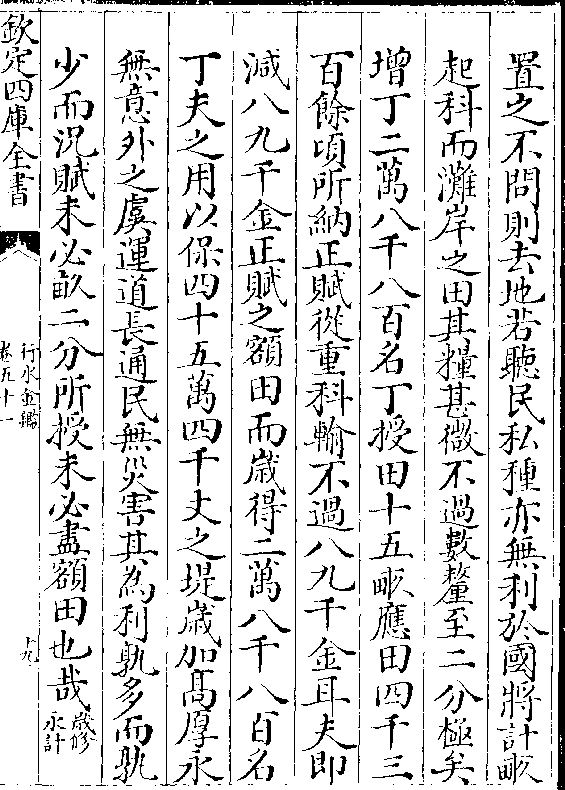 置之不問則去地若聽民私種亦無利於國將計畝
起科而灘岸之田其糧甚微不過數釐至二分極矣
增丁二萬八千八百名丁授田十五畝應田四千三
百餘頃所納正賦從重科輸不過八九千金耳夫即
減八九千金正賦之額田而歲得二萬八千八百名
丁夫之用以保四十五萬四千丈之堤歲加高厚永
無意外之虞運道長通民無災害其為利孰多而孰
少而況賦未必畝二分所授未必盡額田也哉歲修
永計
欽定四庫全書
行水金鑑
卷五十一
十九